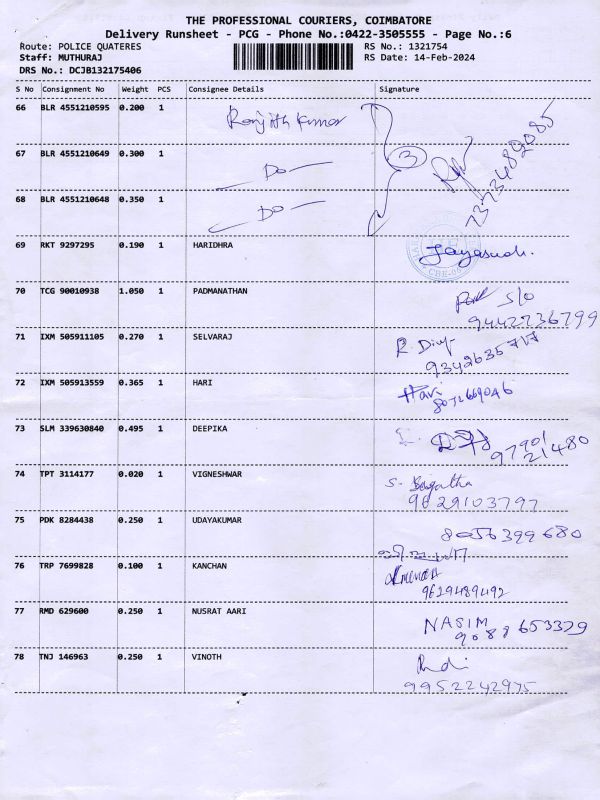 THE PROFESSIONAL COURIERS, COIMBATORE
Delivery Runsheet - PCG - Phone No.:0422-3505555 - Page No.:6
Route: POLICE QUATERES RS No.: 1321754
Staff: MUTHURAJ RS Date: 14-Feb-2024
DRS No.: DCJB132175406
S No Consignment No Weight PCS Consignee Details Signature
66 BLR 4551210595 0.200 1 Ranjith Kumar
67 BLR 4551210649 0.300 1 Do 3
68 BLR 4551210648 0.350 1 Do
69 RKT 9297295 0.190 1 HARIDHRA Jayasudh.
70 TCG 90010938 1.050 1 PADMANATHAN S/o
9442236799
71 IXM 505911105 0.270 1 SELVARAJ R. Divy
9342635717
72 IXM 505913559 0.365 1 HARI Hari
8072669046
73 SLM 339630840 0.495 1 DEEPIKA
97901
21480
74 TPT 3114177 0.020 1 VIGNESHWAR S.
9629103797
75 PDK 8284438 0.250 1 UDAYAKUMAR 8056399680
76 TRP 7699828 0.100 1 KANCHAN
9619489492
77 RMD 629600 0.250 1 NUSRAT AARI NASIM
9088653329
78 TNJ 146963 0.250 1 VINOTH
9952242975